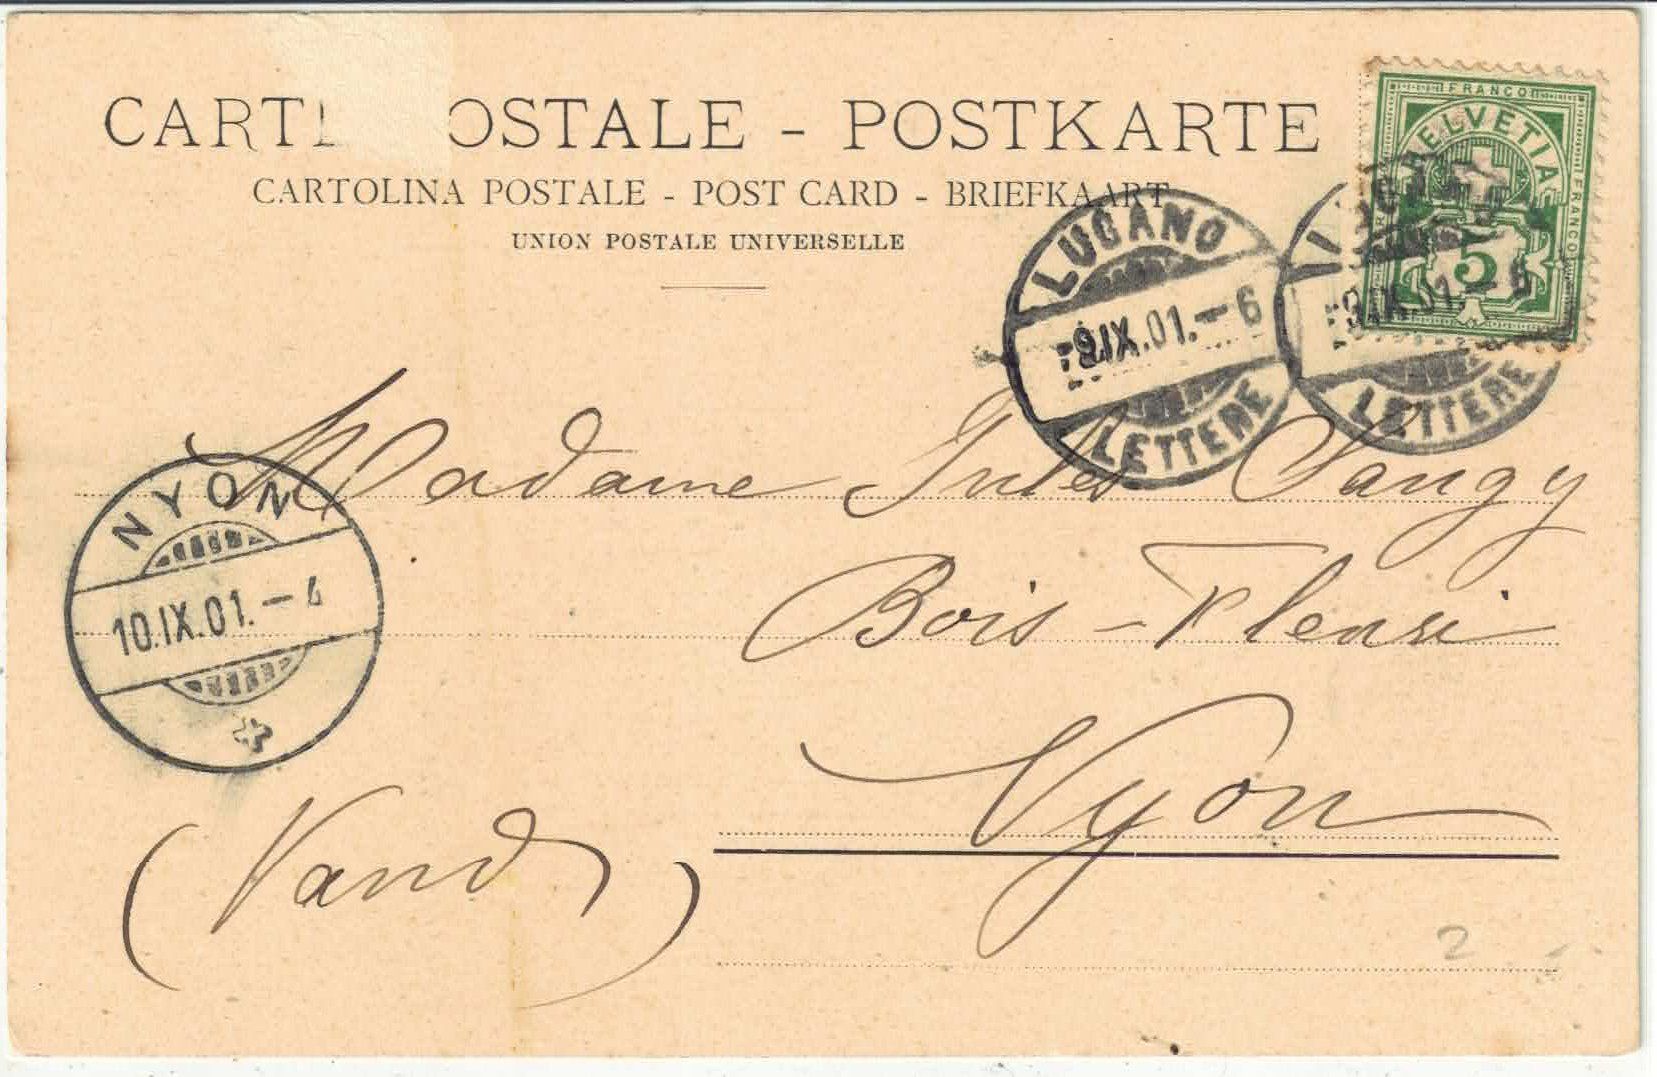 CARTE POSTALE - POSTKARTE
CARTOLINA POSTALE - POST CARD - BRIEFKAART
UNION POSTALE UNIVERSELLE
FRANCO
HELVETIA
FRANCO
5
LUGANO
9.IX.01.-6
LETTERE
9.IX.01.-6
LETTERE
Madame Jules Sangy
Bois-Fleuri
Nyon
(Vaud)
NYON
10.IX.01.-4
2